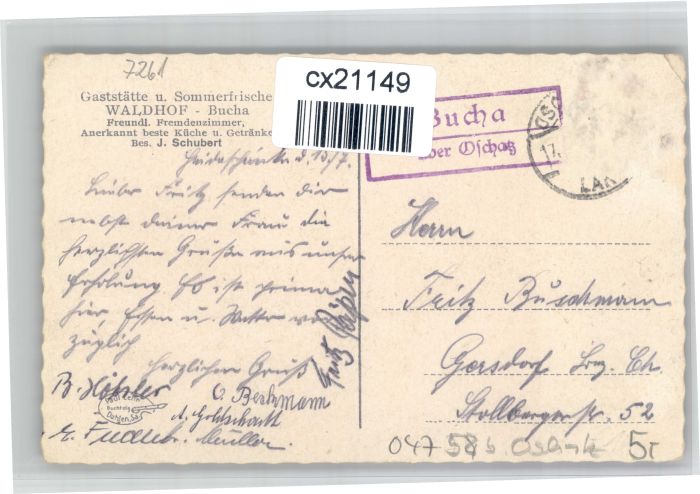 7261
cx21149
Gaststätte u. Sommerfrische
WALDHOF - Bucha
Freundl. Fremdenzimmer,
Anerkannt beste Küche u. Getränke
Bes. J. Schubert
Bucha
über Oschatz
17.
Lieber Fritz senden dir
nebst deiner Frau die
herzlichsten Grüße aus unser
Erholung. Es ist prima
hier, Essen u. Wetter vor
züglich
herzlichen Gruß
Fritz
B. Beckmann
Müller.
Herrn
Fritz Buschmann
Gersdorf Bez. Ch
Stollbergerstr. 52
047 58 b. Oschatz 5,-